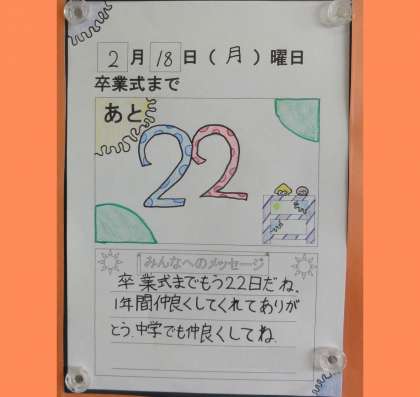 2月18日(月)曜日
卒業式まで
あと
22
みんなへのメッセージ
卒業式までもう22日だね.
1年間仲良くしてくれてありが
とう.中学でも仲良くしてね.